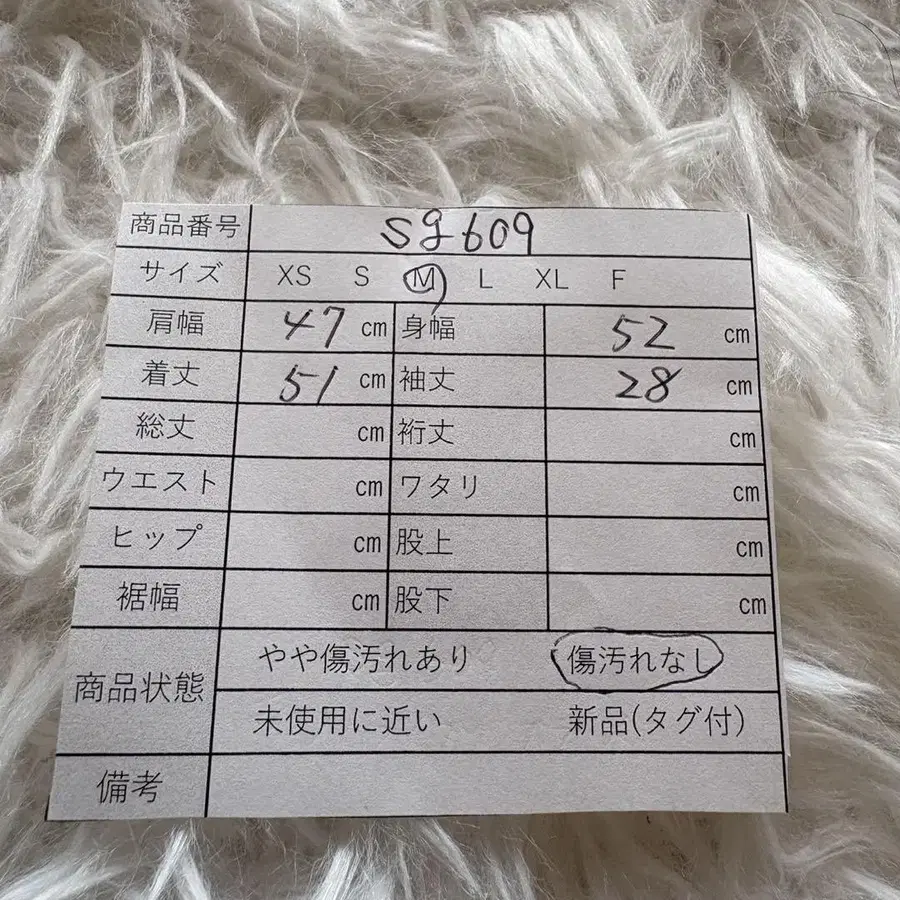 商品番号 sg609
サイズ XS S M L XL F
肩幅 47 cm 身幅 52 cm
着丈 51 cm 袖丈 28 cm
総丈 cm 裄丈 cm
ウエスト cm ワタリ cm
ヒップ cm 股上 cm
裾幅 cm 股下 cm
商品状態 やや傷汚れあり 傷汚れなし
未使用に近い 新品(タグ付)
備考